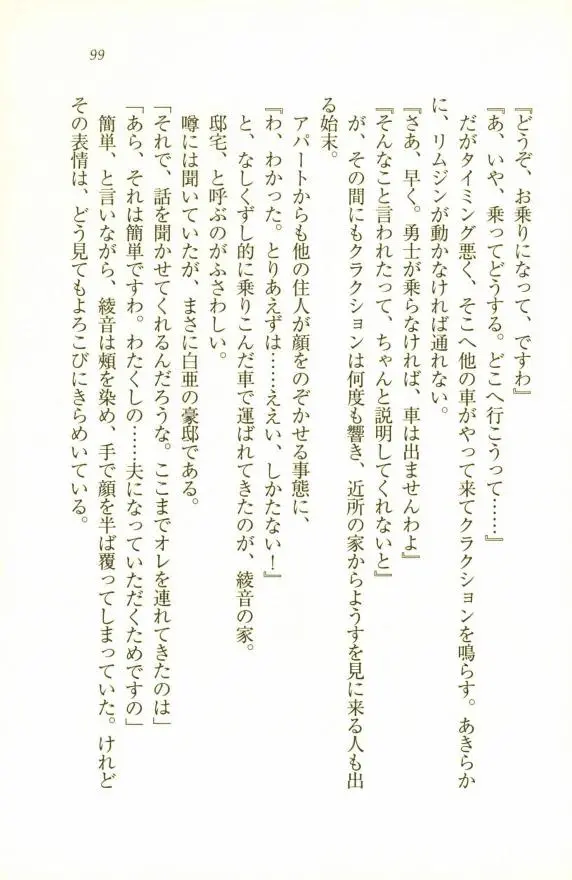 99
『どうぞ、お乗りになって、ですわ』
『あ、いや、乗ってどうする。どこへ行こうって……』
だがタイミング悪く、そこへ他の車がやって来てクラクションを鳴らす。あきらか
に、リムジンが動かなければ通れない。
『さあ、早く。勇士が乗らなければ、車は出ませんわよ』
『そんなこと言われたって、ちゃんと説明してくれないと』
が、その間にもクラクションは何度も響き、近所の家からようすを見に来る人も出
る始末。
アパートからも他の住人が顔をのぞかせる事態に、
『わ、わかった。とりあえずは……ええい、しかたない！』
と、なしくずし的に乗りこんだ車で運ばれてきたのが、綾音の家。
邸宅、と呼ぶのがふさわしい。
噂には聞いていたが、まさに白亜の豪邸である。
「それで、話を聞かせてくれるんだろうな。ここまでオレを連れてきたのは」
「あら、それは簡単ですわ。わたくしの……夫になっていただくためですの」
簡単、と言いながら、綾音は頰を染め、手で顔を半ば覆ってしまっていた。けれど
その表情は、どう見てもよろこびにきらめいている。